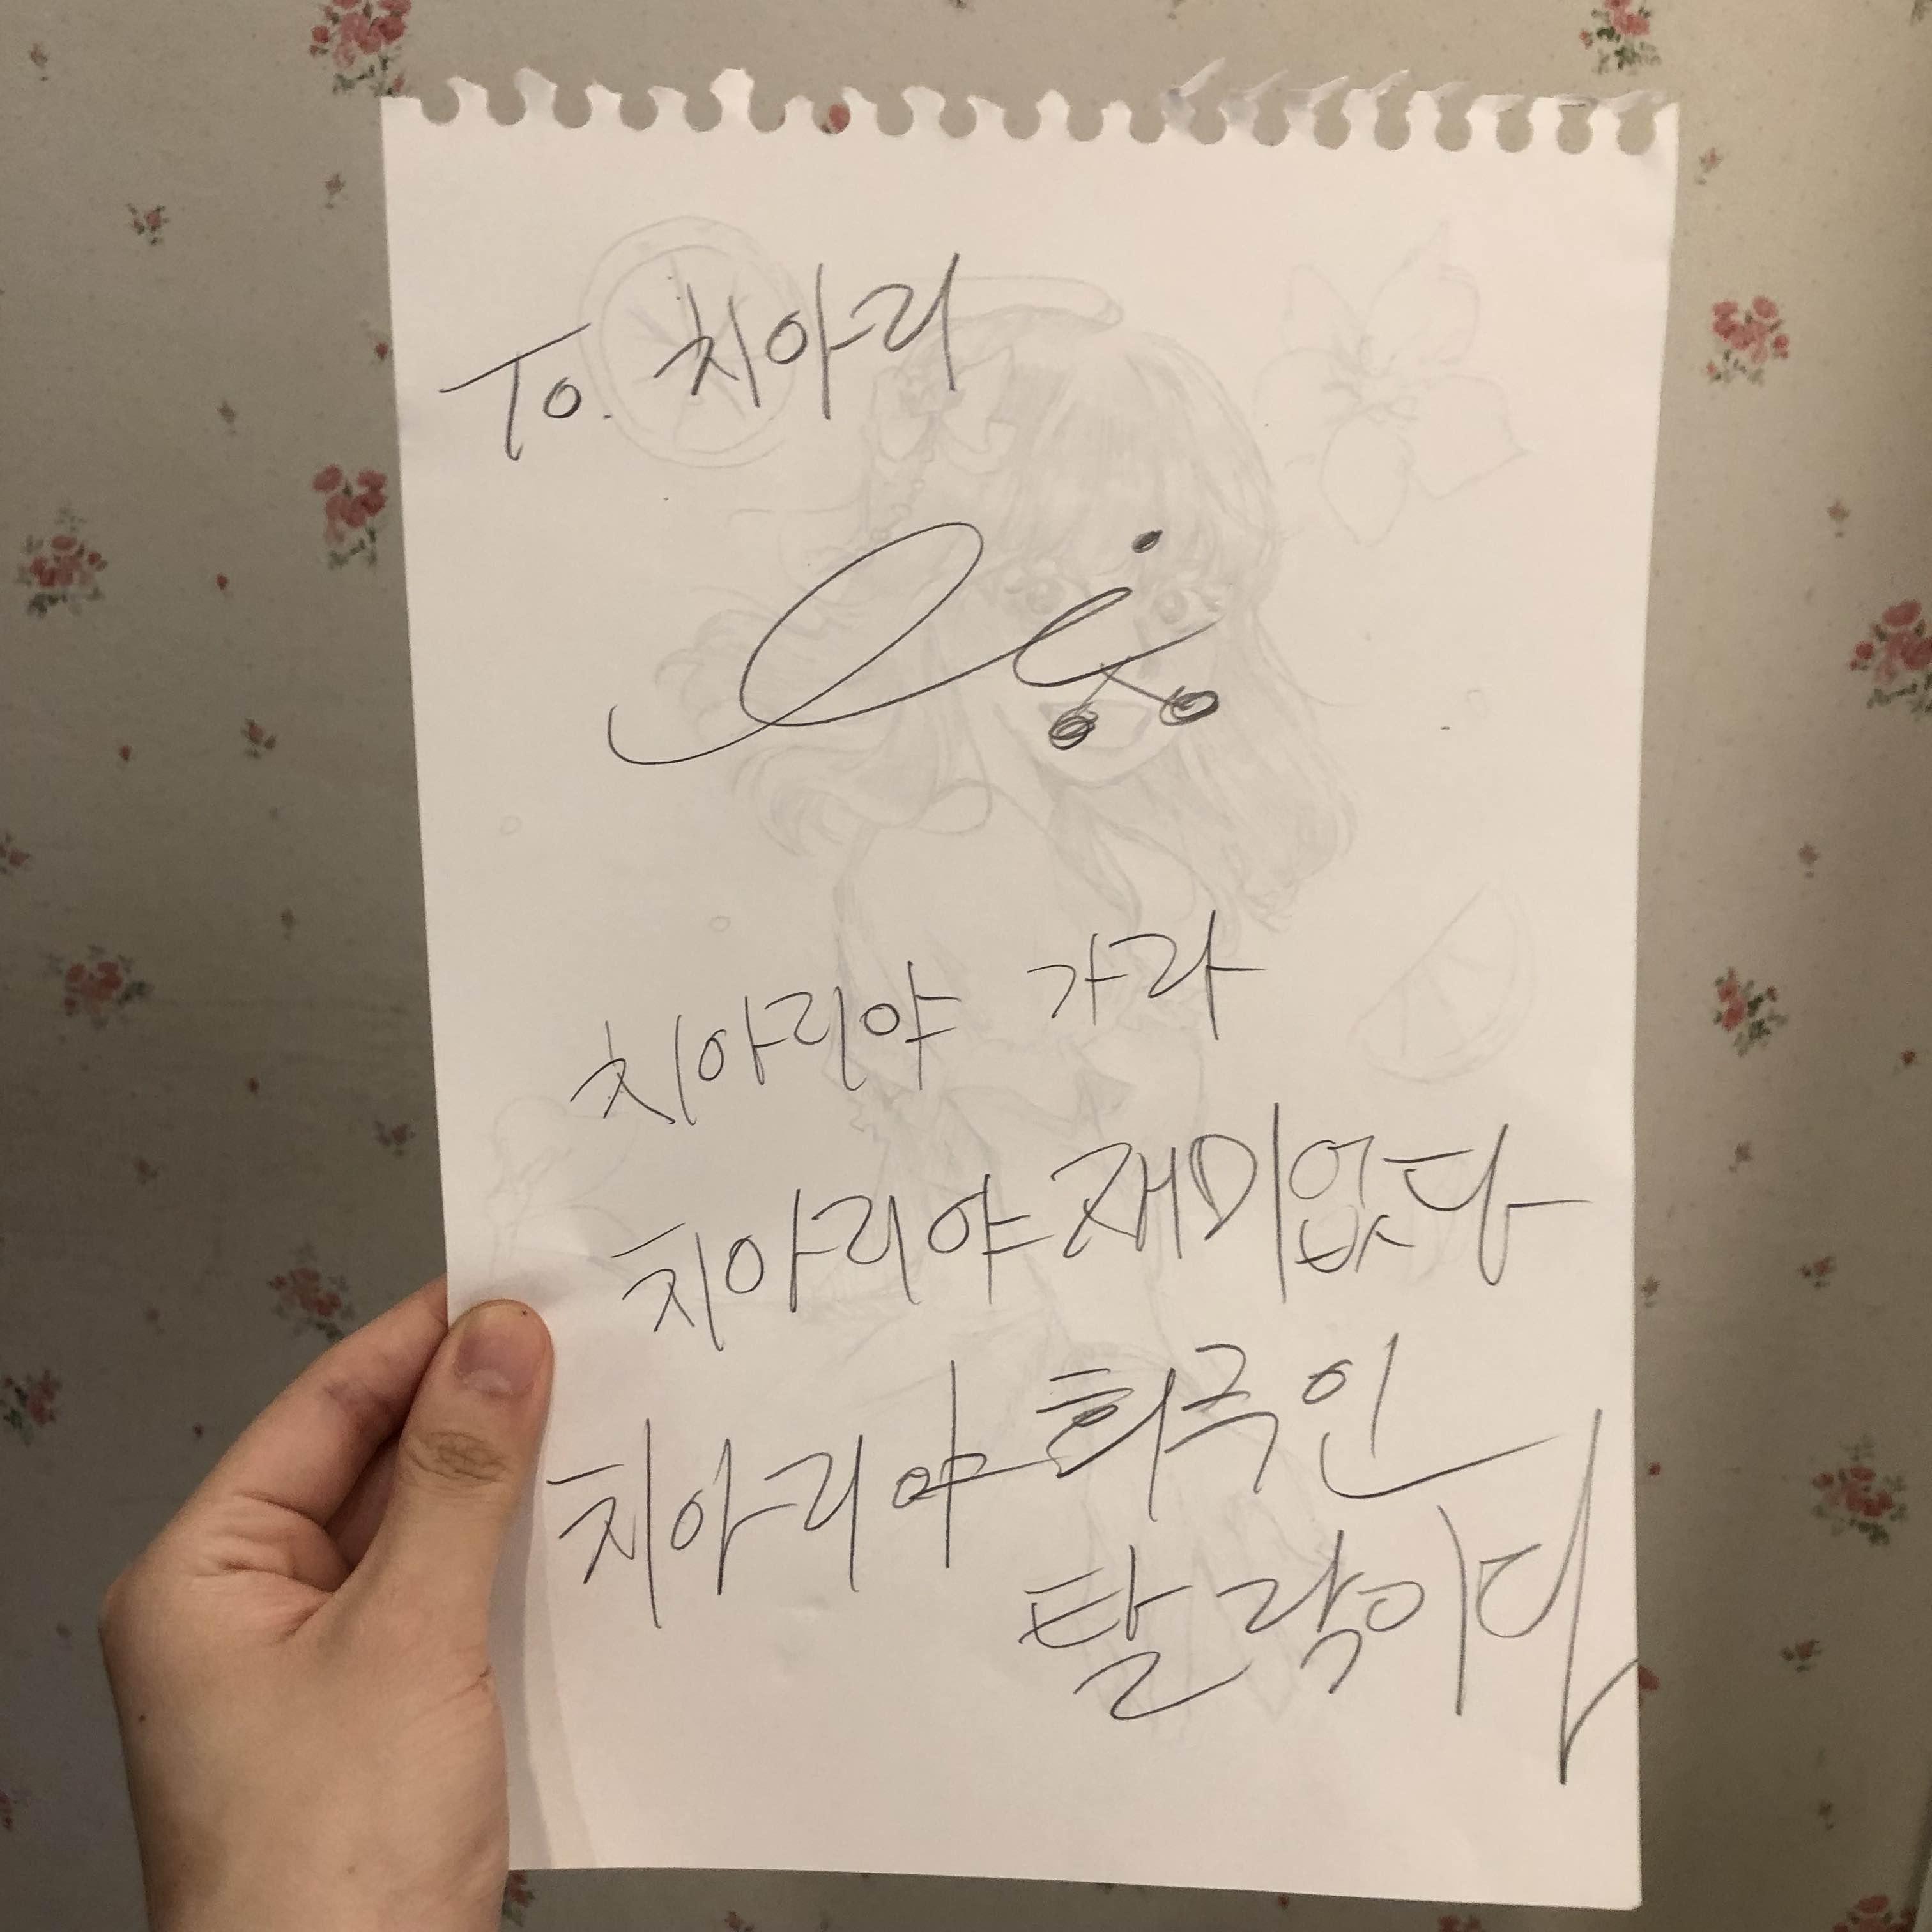 To. 치아리
치아리야 가라
치아리야 재미없다
치아리야 희극인
탈락이다